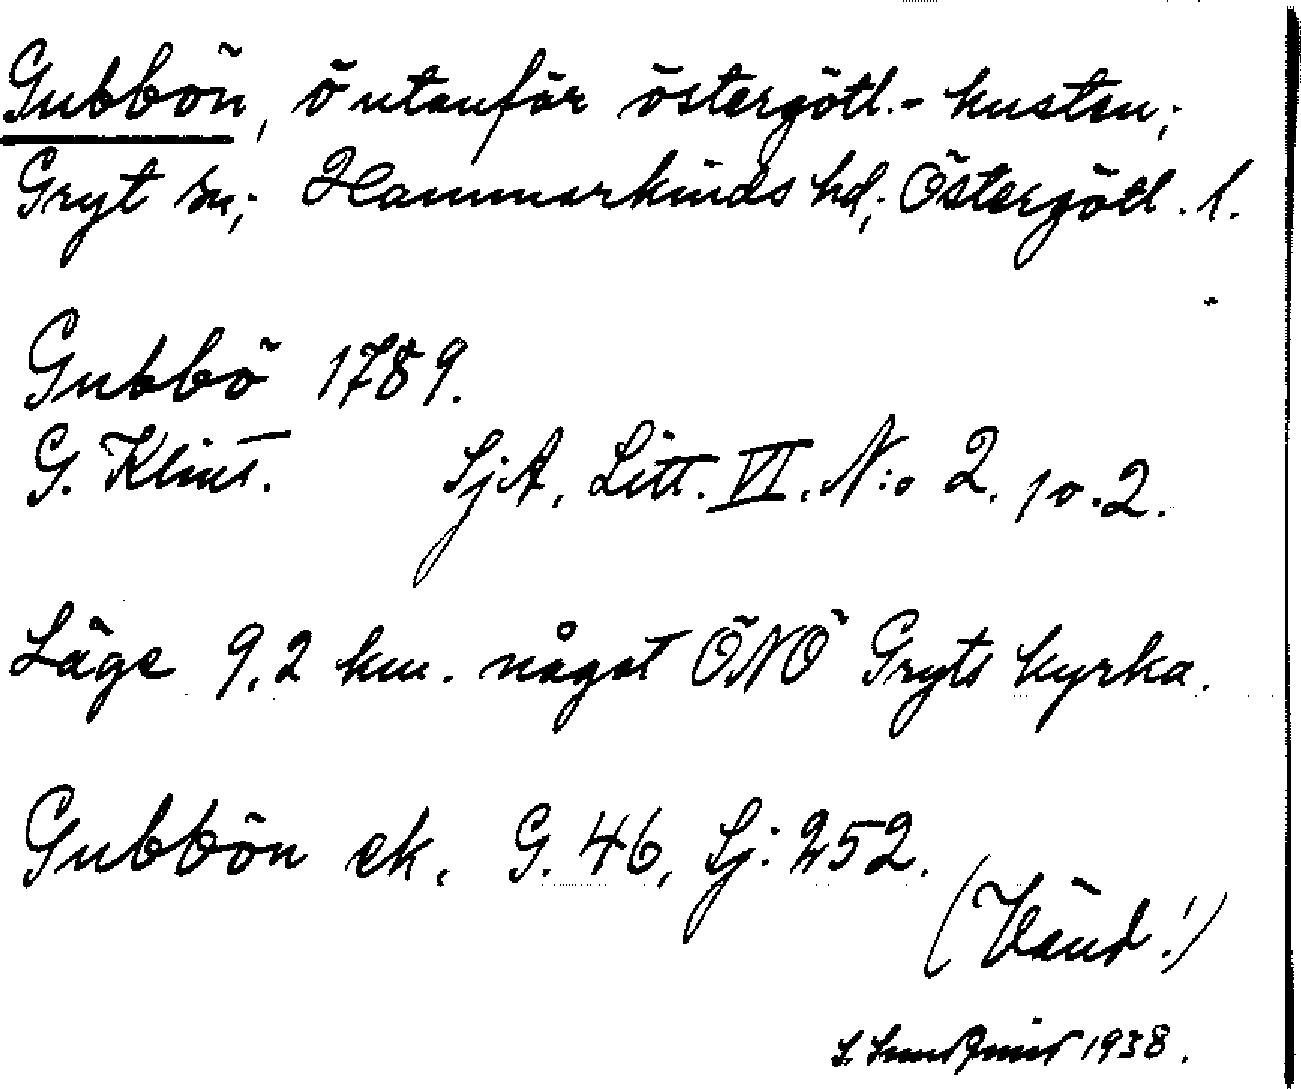 Gubbön, ö utanför östergötl.- kusten;
Gryt sn; Hammarkinds hd; Östergötl. l.
Gubbö 1789.
G. Klint. SjA, Litt. VI. N:o 2. p. 2.
Läge 9,2 km. något ÖNÖ Gryts kyrka.
Gubbön ek. G. 46, Sj: 252.
(Vänd!)
1938.